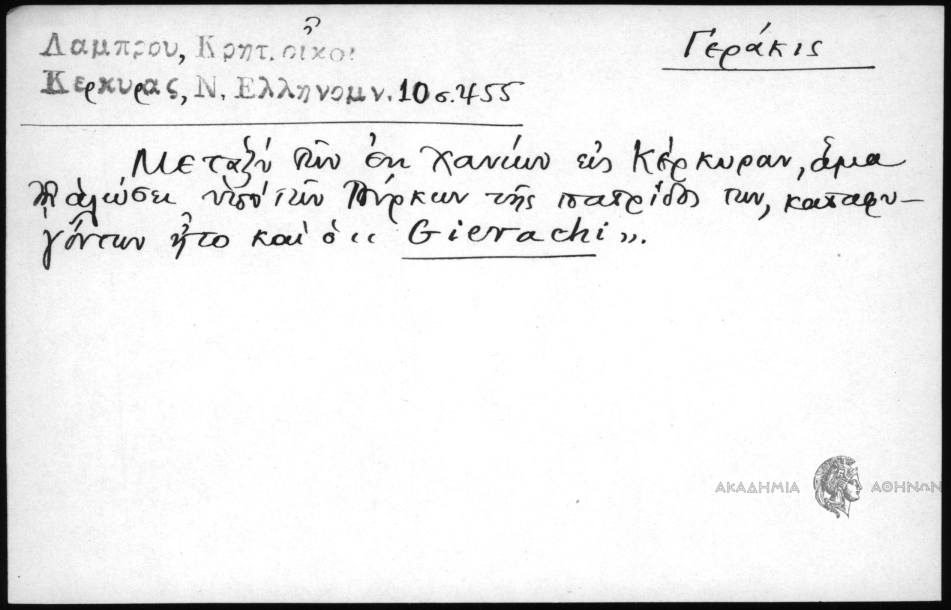 Λαμπρου, Κρητ. οἶκοι
Κερκυρας, Ν. Ελληνομν. 10 σ. 455
Γεράκις
Μεταξύ τῶν ἐκ Χανίων εἰς Κέρκυραν, ἅμα
τῇ ἁλώσει ὑπό τῶν Τούρκων τῆς πατρίδος των, καταφυ-
γόντων ἦτο καί ὁ «Gierachi».
ΑΚΑΔΗΜΙΑ ΑΘΗΝΩΝ